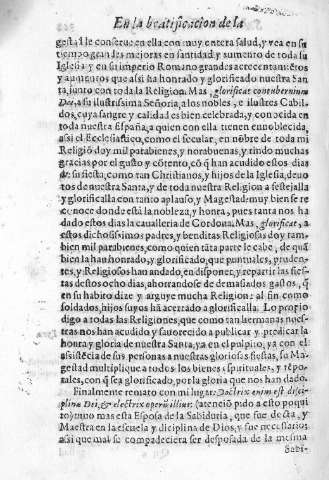 En la beatificacion de la
gestad le conserue en ella con muy entera salud, y vea en su
tiempo grandes mejoras en santidad y aumento de toda su
Iglesia y en su imperio Romano grandes acrecentamiẽtos
y aumentos que assi ha honrado y glorificado nuestra San
ta, junto con toda la Religion. Mas, glorificat contubernium
Dei, a su ilustrissima Señoria, a los nobles, e ilustres Cabil-
dos, cuya sangre y calidad es bien celebrada, y conocida en
toda nuestra España, a quien con ella tienen ennoblecida,
assi el Ecclesiastico, como el secular, en nõbre de toda mi
Religiõ doy mil parabienes, y norabuenas, y rindo muchas
gracias por el gusto y cõtento, cõ q̃ han acudido estos dias
de su fiesta, como tan Christianos, y hijos de la Iglesia, deuo
tos de nuestra Santa, y de toda nuestra Religion a festejalla
y glorificalla con tanto aplauso, y Magestad: muy bien se re
conoce donde està la nobleza, y honra, pues tanta nos ha
dado estos dias la caualleria de Cordoua. Mas, glorificat, a
estos dichosissimos padres, y benditas Religiosas doy tam-
bien mil parabienes, como quien tãta parte le cabe, de quã
bien la han honrado, y glorificado, que puntuales, pruden-
tes, y Religiosos han andado, en disponer, y repartir las fies-
tas destos ocho dias, ahorrandose de demasiados gastos, q̃
en su habito dize y arguye mucha Religion: al fin como
soldados, hijos suyos hã acertado a glorificalla. Lo propio
digo a todas las Religiones, que como tan hermanas nues-
tras nos han acudido y fauorecido a publicar y predicar la
honra y gloria de nuestra Santa, ya en el pulpito, ya con el
assistẽcia de sus personas a nuestras gloriosas fiestas, su Ma
gestad multiplique a todos los bienes espirituales, y tẽpo-
rales, con q̃ sea glorificado, por la gloria que nos han dado.
Finalmente remato con mi lugar: Doctrix enim est disci-
plinæ Dei, & electrix operũ illius: (atenciõ pido a esto poquito)
mas esta Esposa de la Sabiduria, que fue docta, y
Maestra en la escuela y diciplina de Dios, y fue necessario
assi que mal se compadeciera ser desposada de la mesma
Sabi-